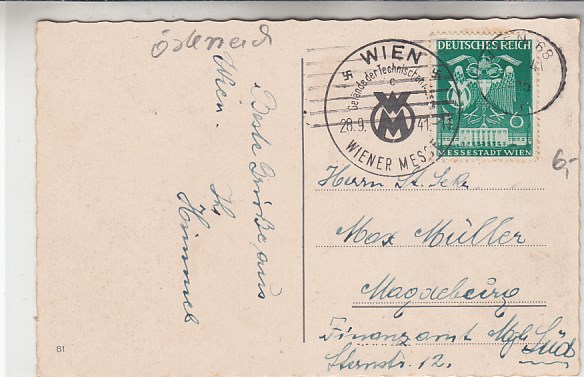 Österreich
WIEN
Gelände der Technischen
WM
28.9. 41
WIENER MESSE
DEUTSCHES REICH
6
MESSESTADT WIEN
68
6,-
Beste Grüße aus
Wien.
Ihr
Himmel
Herrn St. Sekr.
Max Müller
Magdeburg
Finanzamt Mgb Süd
Sternstr. 12.
81